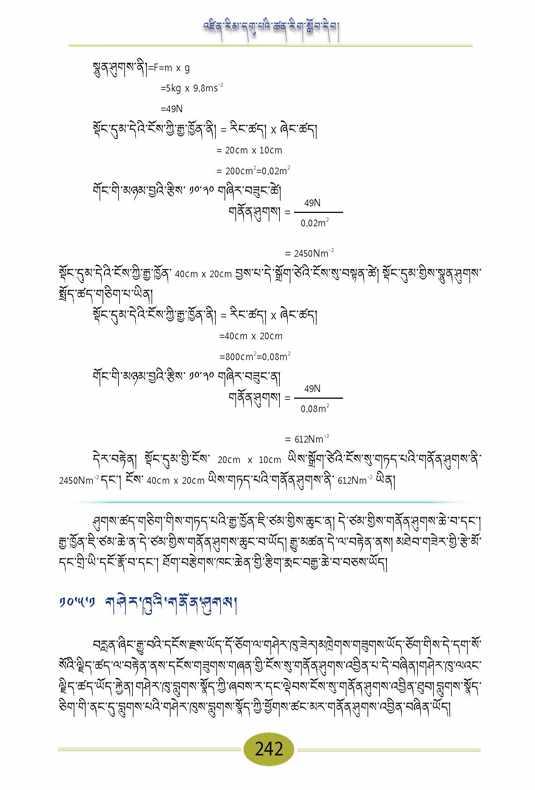 འཛིན་རིམ་དགུ་པའི་ཚན་རིག་སློབ་དེབ།
སྣུན་ཤུགས་ནི།=F=m x g
=5kg x 9.8ms⁻²
=49N
སྡོང་དུམ་དེའི་ངོས་ཀྱི་རྒྱ་ཁྱོན་ནི། = རིང་ཚད། x ཞེང་ཚད།
= 20cm x 10cm
= 200cm²=0.02m²
གོང་གི་མཉམ་བྱའི་རྩིས་ ༡༠་༢༠ གཞིར་བཟུང་ཚེ།
གནོན་ཤུགས། = 49N
0.02m²
= 2450Nm⁻²
སྡོང་དུམ་དེའི་ངོས་ཀྱི་རྒྱ་ཁྱོན་ 40cm x 20cm བྱས་པ་དེ་སྒྲོག་ཙེའི་ངོས་སུ་བསྟན་ཚེ། སྡོང་དུམ་གྱིས་སྣུན་ཤུགས་
སྤྲོད་ཚད་གཅིག་པ་ཡིན།
སྡོང་དུམ་དེའི་ངོས་ཀྱི་རྒྱ་ཁྱོན་ནི། = རིང་ཚད། x ཞེང་ཚད།
=40cm x 20cm
=800cm²=0.08m²
གོང་གི་མཉམ་བྱའི་རྩིས་ ༡༠་༢༠ གཞིར་བཟུང་ན།
གནོན་ཤུགས། = 49N
0.08m²
= 612Nm⁻²
དེར་བརྟེན། སྡོང་དུམ་གྱི་ངོས་ 20cm x 10cm ཡིས་སྒྲོག་ཙེའི་ངོས་སུ་གཏད་པའི་གནོན་ཤུགས་ནི་
2450Nm⁻² དང་། ངོས་ 40cm x 20cm ཡིས་གཏད་པའི་གནོན་ཤུགས་ནི་ 612Nm⁻² ཡིན།
ཤུགས་ཚད་གཅིག་གིས་གཏད་པའི་རྒྱ་ཁྱོན་ཇི་ཙམ་གྱིས་ཆུང་ན། དེ་ཙམ་གྱིས་གནོན་ཤུགས་ཆེ་བ་དང་།
རྒྱ་ཁྱོན་ཇི་ཙམ་ཆེ་ན་དེ་ཙམ་གྱིས་གནོན་ཤུགས་ཆུང་བ་ཡོད། རྒྱུ་མཚན་དེ་ལ་བརྟེན་ནས། མཐེབ་གཟེར་གྱི་རྩེ་མོ་
དང་གྲི་ཡི་དངོ་རྣོ་བ་དང་། ཐོག་བརྩེགས་ཁང་ཆེན་གྱི་རྩིག་རྨང་བརྒྱ་ཆེ་བ་བཅས་ཡོད།
༡༠་༥་༡ གཤེར་ཁུའི་གནོན་ཤུགས།
བརླན་ཞིང་རྒྱུ་བའི་དངོས་རྫས་ཡོད་དོ་ཅོག་ལ་གཤེར་ཁུ་ཟེར། མཁྲེགས་གཟུགས་ཡོད་ཅོག་གིས་དེ་དག་སོ་
སོའི་ལྗིད་ཚད་ལ་བརྟེན་ནས་དངོས་གཟུགས་གཞན་གྱི་ངོས་སུ་གནོན་ཤུགས་འབྱིན་པ་དེ་བཞིན། གཤེར་ཁུ་ལའང་
ལྗིད་ཚད་ཡོད་རྐྱེན། གཤེར་ཁུ་བླུགས་སྣོད་ཀྱི་ཞབས་ར་དང་ལྡེབས་ངོས་སུ་གནོན་ཤུགས་འབྱིན་ཐུབ། བླུགས་སྣོད་
ཅིག་གི་ནང་དུ་བླུགས་པའི་གཤེར་ཁུས་བླུགས་སྣོད་ཀྱི་ཕྱོགས་ཚང་མར་གནོན་ཤུགས་འབྱིན་བཞིན་ཡོད།
242